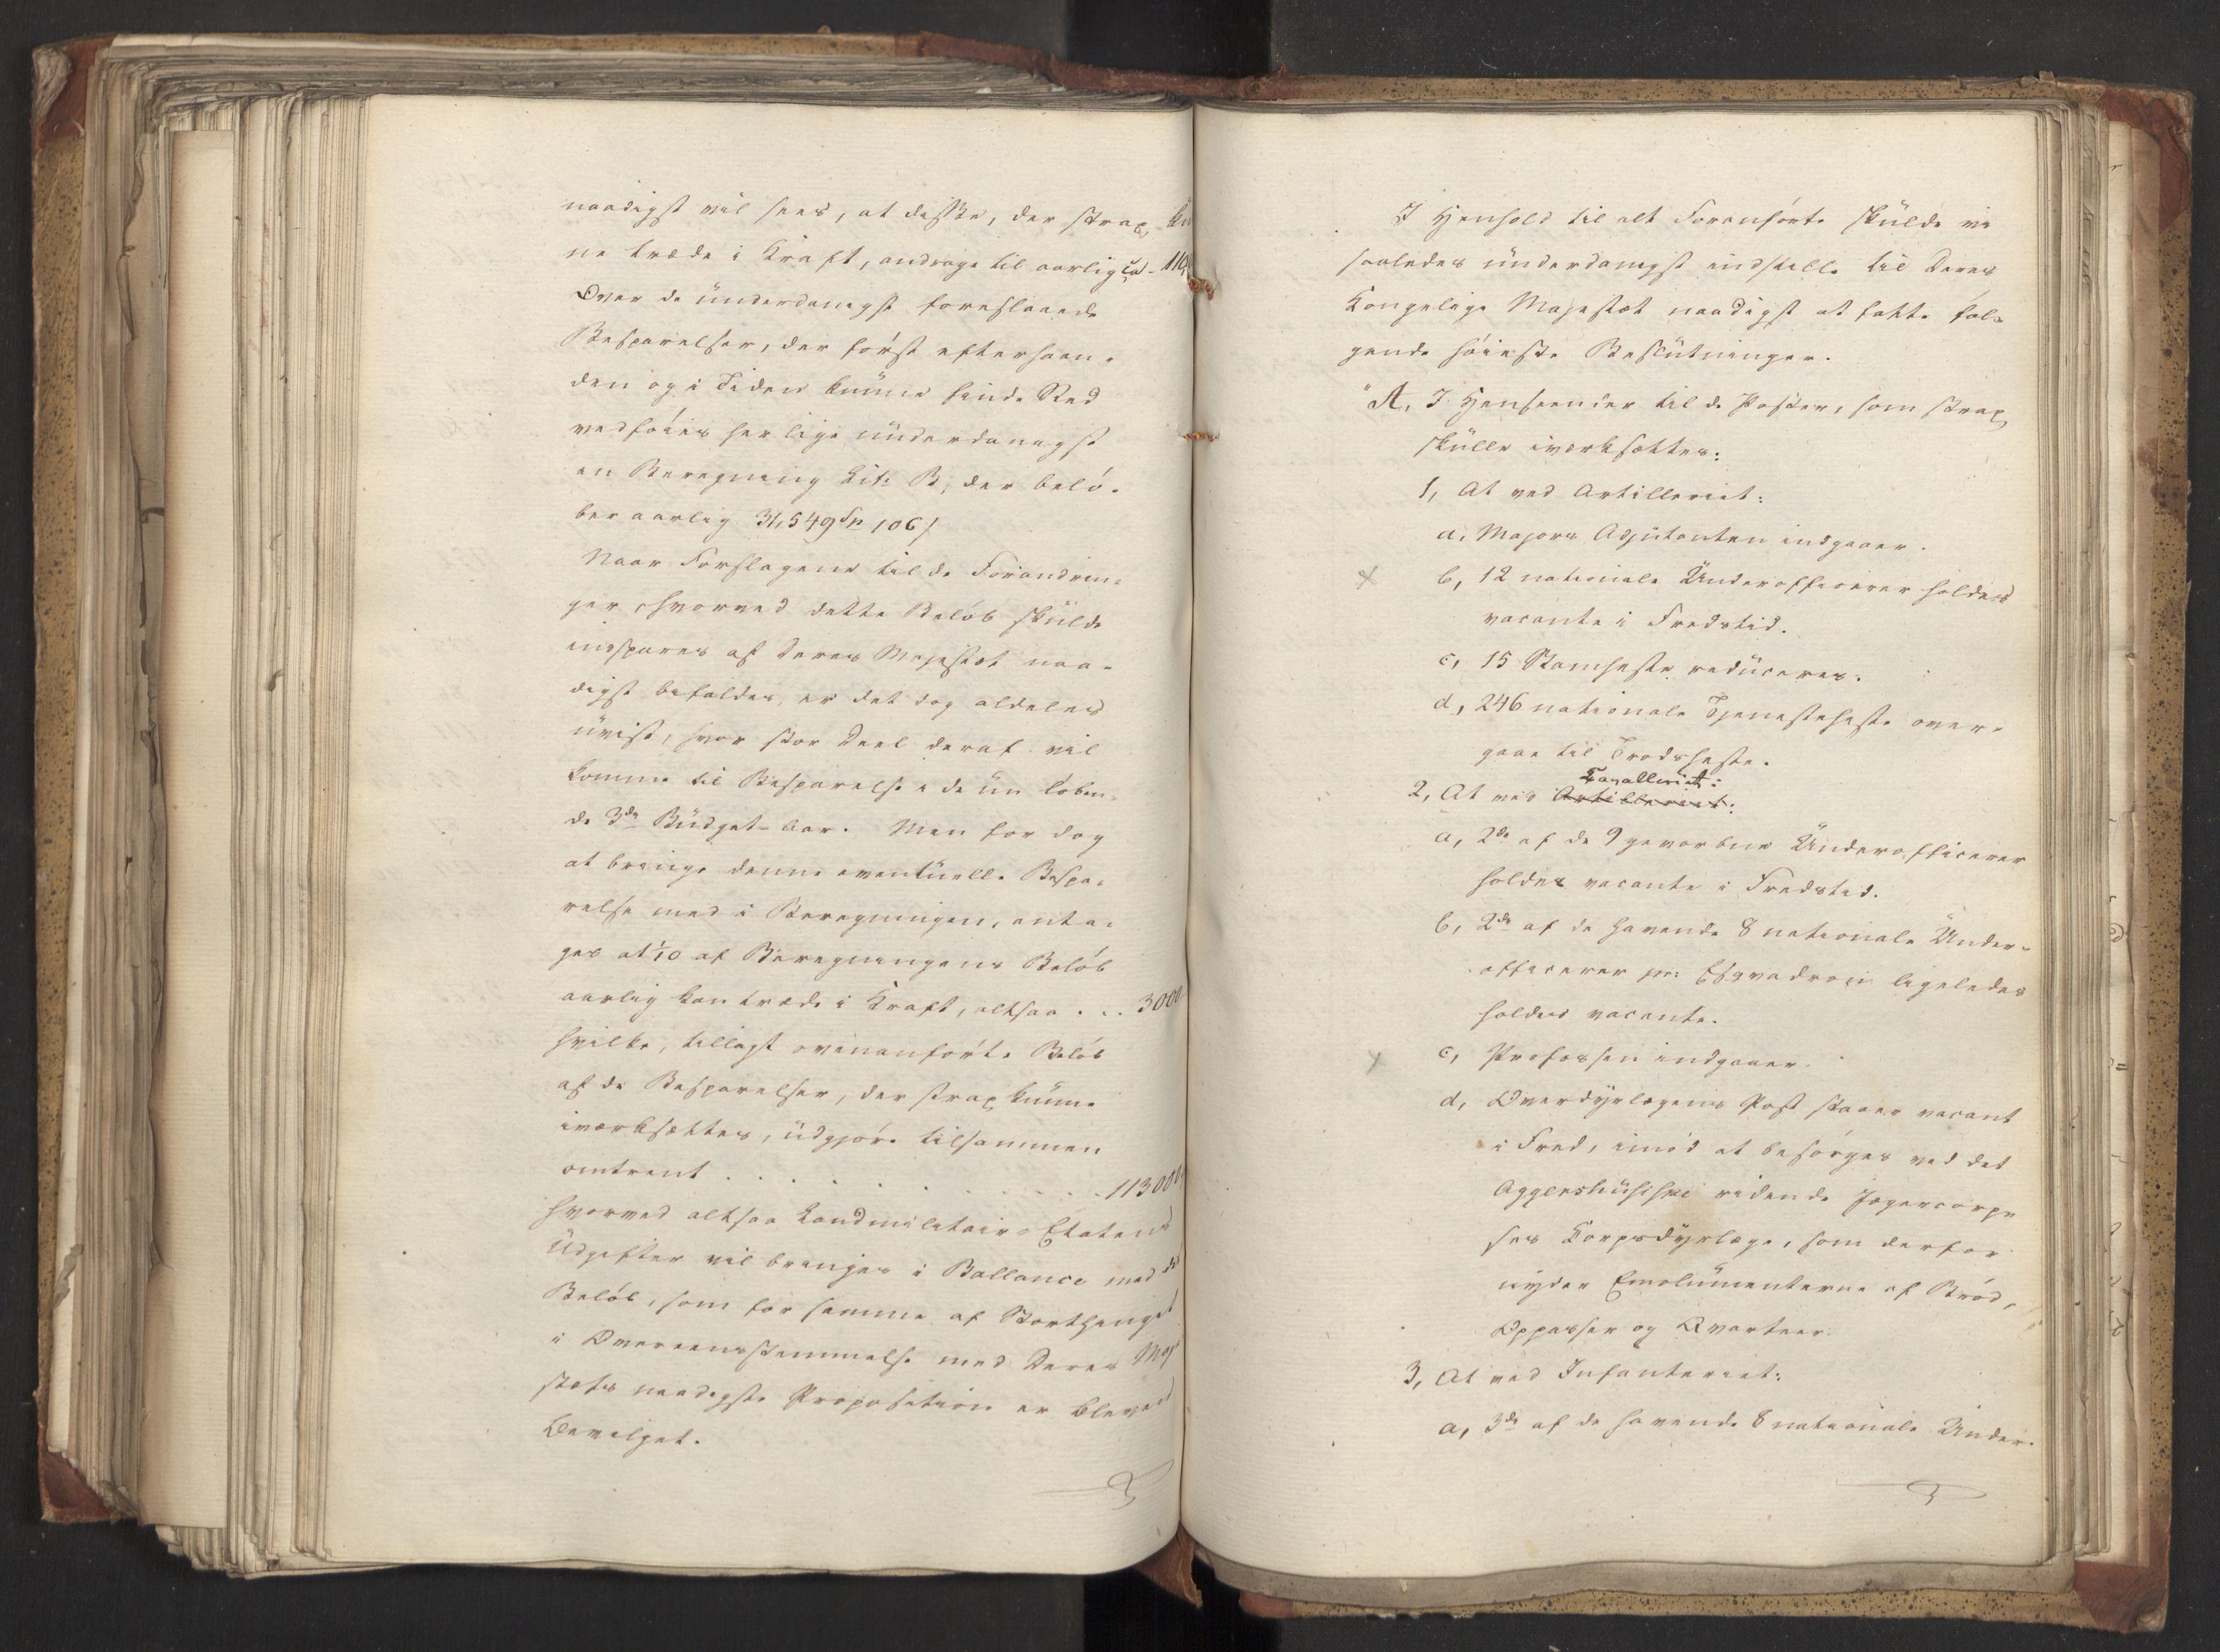 naadigst vil sees, at disse, der strax kun
ne træde i Kraft, andrage til aarlig ca - 110
Over de ünderdanigst foreslaaede
Besparelser, der först efterhaan-
den og i Tiden künne finde Sted
vedföies her lige ünderdanigst
en Beregning Lit: B, der belö-
ber aarlig 31,549 Sp 106 /
Naar Forslagene til de Forandrin-
ger, hvorved dette Belöb skülde
indspares af Deres Majestæt naa-
digst bifaldes, er det dog aldeles
üvist, hvor stor Deel deraf vil
komme til Besparelse i de nü löben-
de 3de Büdget-Aar. Men for dog
at bringe denne eventüelle Bespa-
relse med i Beregningen, anta-
ges at 1/10 af Beregningens Belöb
aarlig kan træde i Kraft, altsaa . . . 3000
hvilke, tillagt ovenanförte Belöb
af de Besparelser, der strax künne
iværksættes, üdgjöre tilsammen
omtrent . . . . . . . . . . 113000
hvorved altsaa Landmilitair-Etatens
Üdgifter vil bringes i Ballance med de
Belöb, som for samme af Storthinget
i Overeensstemmelse med Deres Maj
stæts naadigste Proposition er bleven
bevilget.
I Henhold til alt Foranförte skülde vi
saaledes ünderdanigst indstille til Deres
Kongelige Majestæt naadigst at fatte föl-
gende höieste Beslütninger.
"A, I Henseender til de Poster, som strax
skülle iværksættes:
1, At ved Artilleriet:
a, Majors Adjütanten indgaaer.
b, 12 nationale Ünderofficerer holdes
vacante i Fredstid.
c, 15 Stamheste redüceres.
d, 246 nationale Tjenesteheste over-
gaae til Trodsheste.
Cavalleriet:
2, At ved Artilleriet:
a, 2de af de 9 gevorbne Ünderofficerer
holdes vacante i Fredstid.
b, 2de af de havende 8 nationale Ünder-
officerer pr: Esqvadron ligeledes
holdes vacante.
c, Profossen indgaaer.
d, Overdyrlægens Post staaer vacant
i Fred, imod at besörges ved det
Aggershüsiske ridende Jægercorps
ses Korpsdyrlæge, som derfor
nyder Emolümenterne af Bröd,
Oppasser og Qvarteer.
3, At ved Infanteriet:
a, 3de af de havende 8 nationale Ünder-